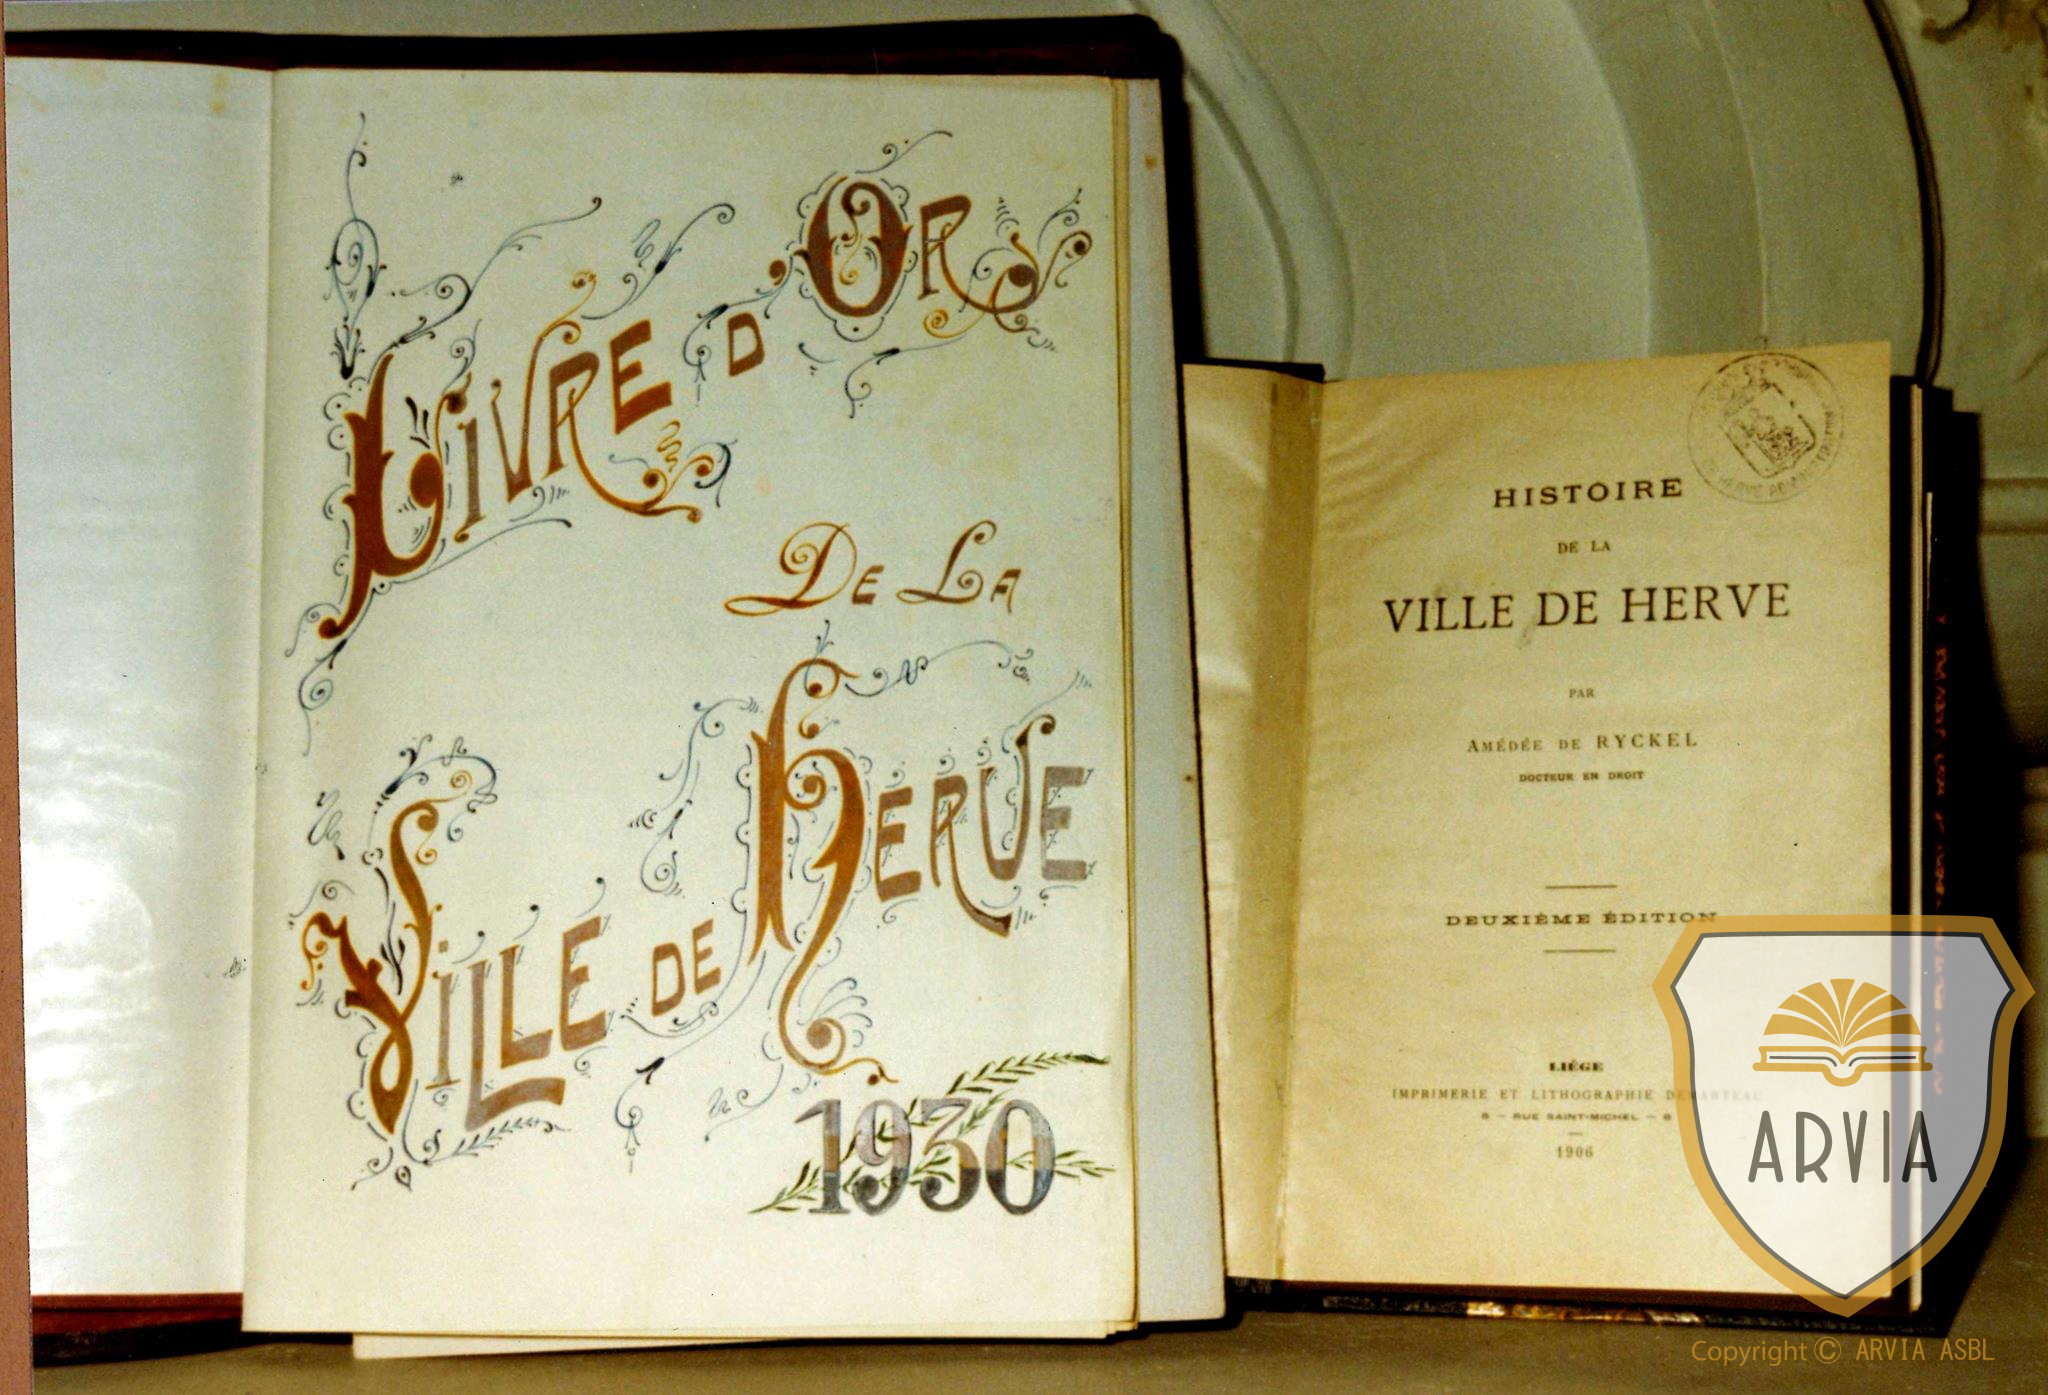 LIVRE D'OR
DE LA
VILLE DE HERVE
1930
HISTOIRE
DE LA
VILLE DE HERVE
PAR
AMÉDÉE DE RYCKEL
DOCTEUR EN DROIT
DEUXIÈME ÉDITION
LIÉGE
IMPRIMERIE ET LITHOGRAPHIE DEMARTEAU
8 – RUE SAINT-MICHEL – 8
1906
ARVIA
Copyright © ARVIA ASBL